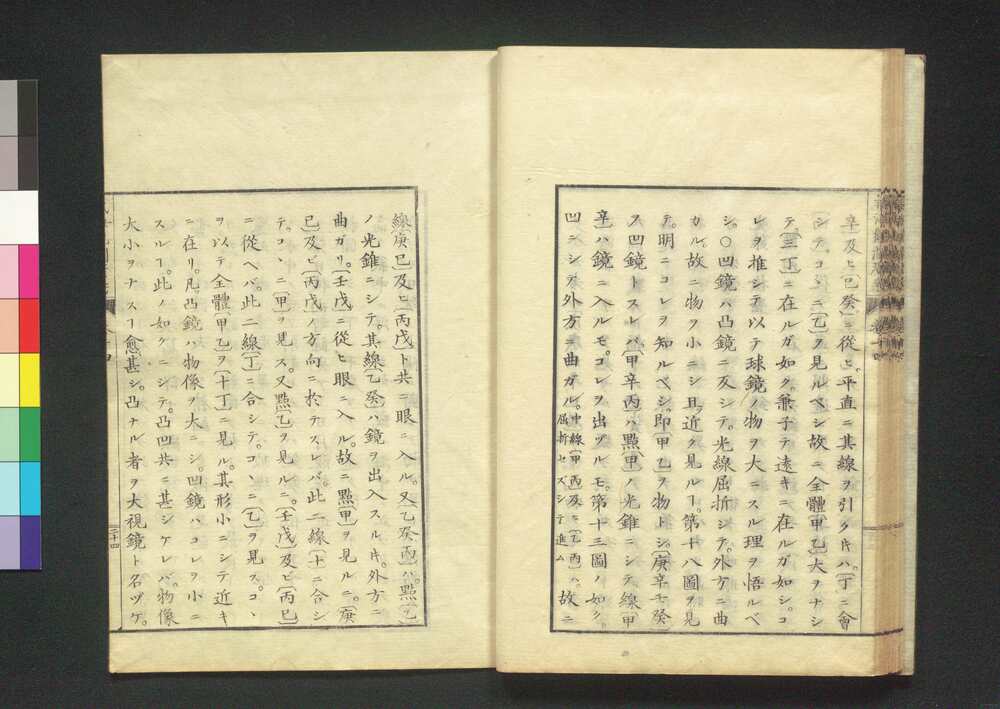 辛及ヒ〔己癸〕ニ從ヒ。平直ニ其線ヲ引クキハ。〔丁〕ニ會
シテ。コヽニ〔乙〕ヲ見ルベシ故ニ全體甲乙大ヲナシ
テ。〔三丁〕ニ在ルガ如ク。兼子テ遠キニ在ルガ如シ。コ
レヲ推シテ以テ球鏡ノ物ヲ大ニスル理ヲ悟ルベ
シ。〇凹鏡ハ凸鏡ニ反シテ。光線屈折シテ。外方ニ曲
カル。故ニ物ヲ小ニシ且。近ク見ルヿ。第十八圖ヲ見
テ。明ニコレヲ知ルベシ。即〔甲乙〕ヲ物トシ。〔庚辛壬癸〕
ヲ凹鏡トスレバ。〔甲辛丙〕ハ點〔甲〕ノ光錐ニシテ。線〔甲
辛〕ハ鏡ニ入ルモ。コレヲ出ヅルモ。第十三圖ノ如ク。
凹ニシテ外方ニ曲ガル。中線〔甲丙〕及ヒ〔乙丙〕ハ。屈折セズシテ進ム 故ニ
線〔庚巳〕及ヒ〔丙戊〕ト共ニ眼ニ入ル。又〔乙癸丙〕ハ。點〔乙〕
ノ光錐ニシテ。其線〔乙癸〕ハ鏡ヲ出入スルキ。外方ニ
曲ガリ。〔壬戊〕ニ從ヒ眼ニ入ル。故ニ點〔甲〕ヲ見ルニ。〔庚
己〕及ビ〔丙戊〕ノ方向ニ於テスレバ。此二線〔十〕ニ合シ
テ。コヽニ〔甲〕ヲ見ス。又點〔乙〕ヲ見ルニ。〔壬戊〕及ビ〔丙巳〕
ニ從ヘバ。此二線〔丁〕ニ合シテ。コヽニ〔乙〕ヲ見ス。コヽ
ヲ以テ全體〔甲乙〕ヲ〔十丁〕ニ見ル。其形小ニシテ近キ
ニ在リ。凡凸鏡ハ物像ヲ大ニシ。凹鏡ハコレヲ小ニ
スルヿ。此ノ如クニシテ。凸凹共ニ甚シケレバ。物像
大小ヲナスヿ愈甚シ。凸ナル者ヲ大視鏡ト名ヅケ。